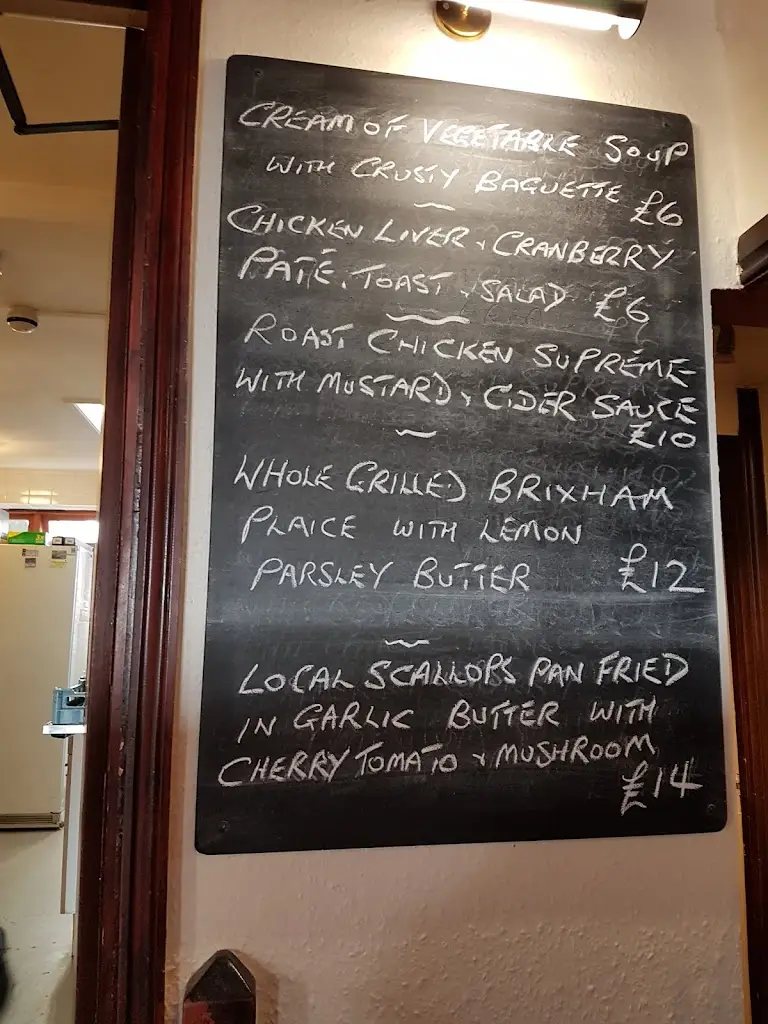 CREAM OF VEGETABLE SOUP
WITH CRUSTY BAGUETTE £6
CHICKEN LIVER + CRANBERRY
PATÉ, TOAST + SALAD £6
ROAST CHICKEN SUPREME
WITH MUSTARD + CIDER SAUCE
£10
WHOLE GRILLED BRIXHAM
PLAICE WITH LEMON
PARSLEY BUTTER £12
LOCAL SCALLOPS PAN FRIED
IN GARLIC BUTTER WITH
CHERRY TOMATO + MUSHROOM
£14